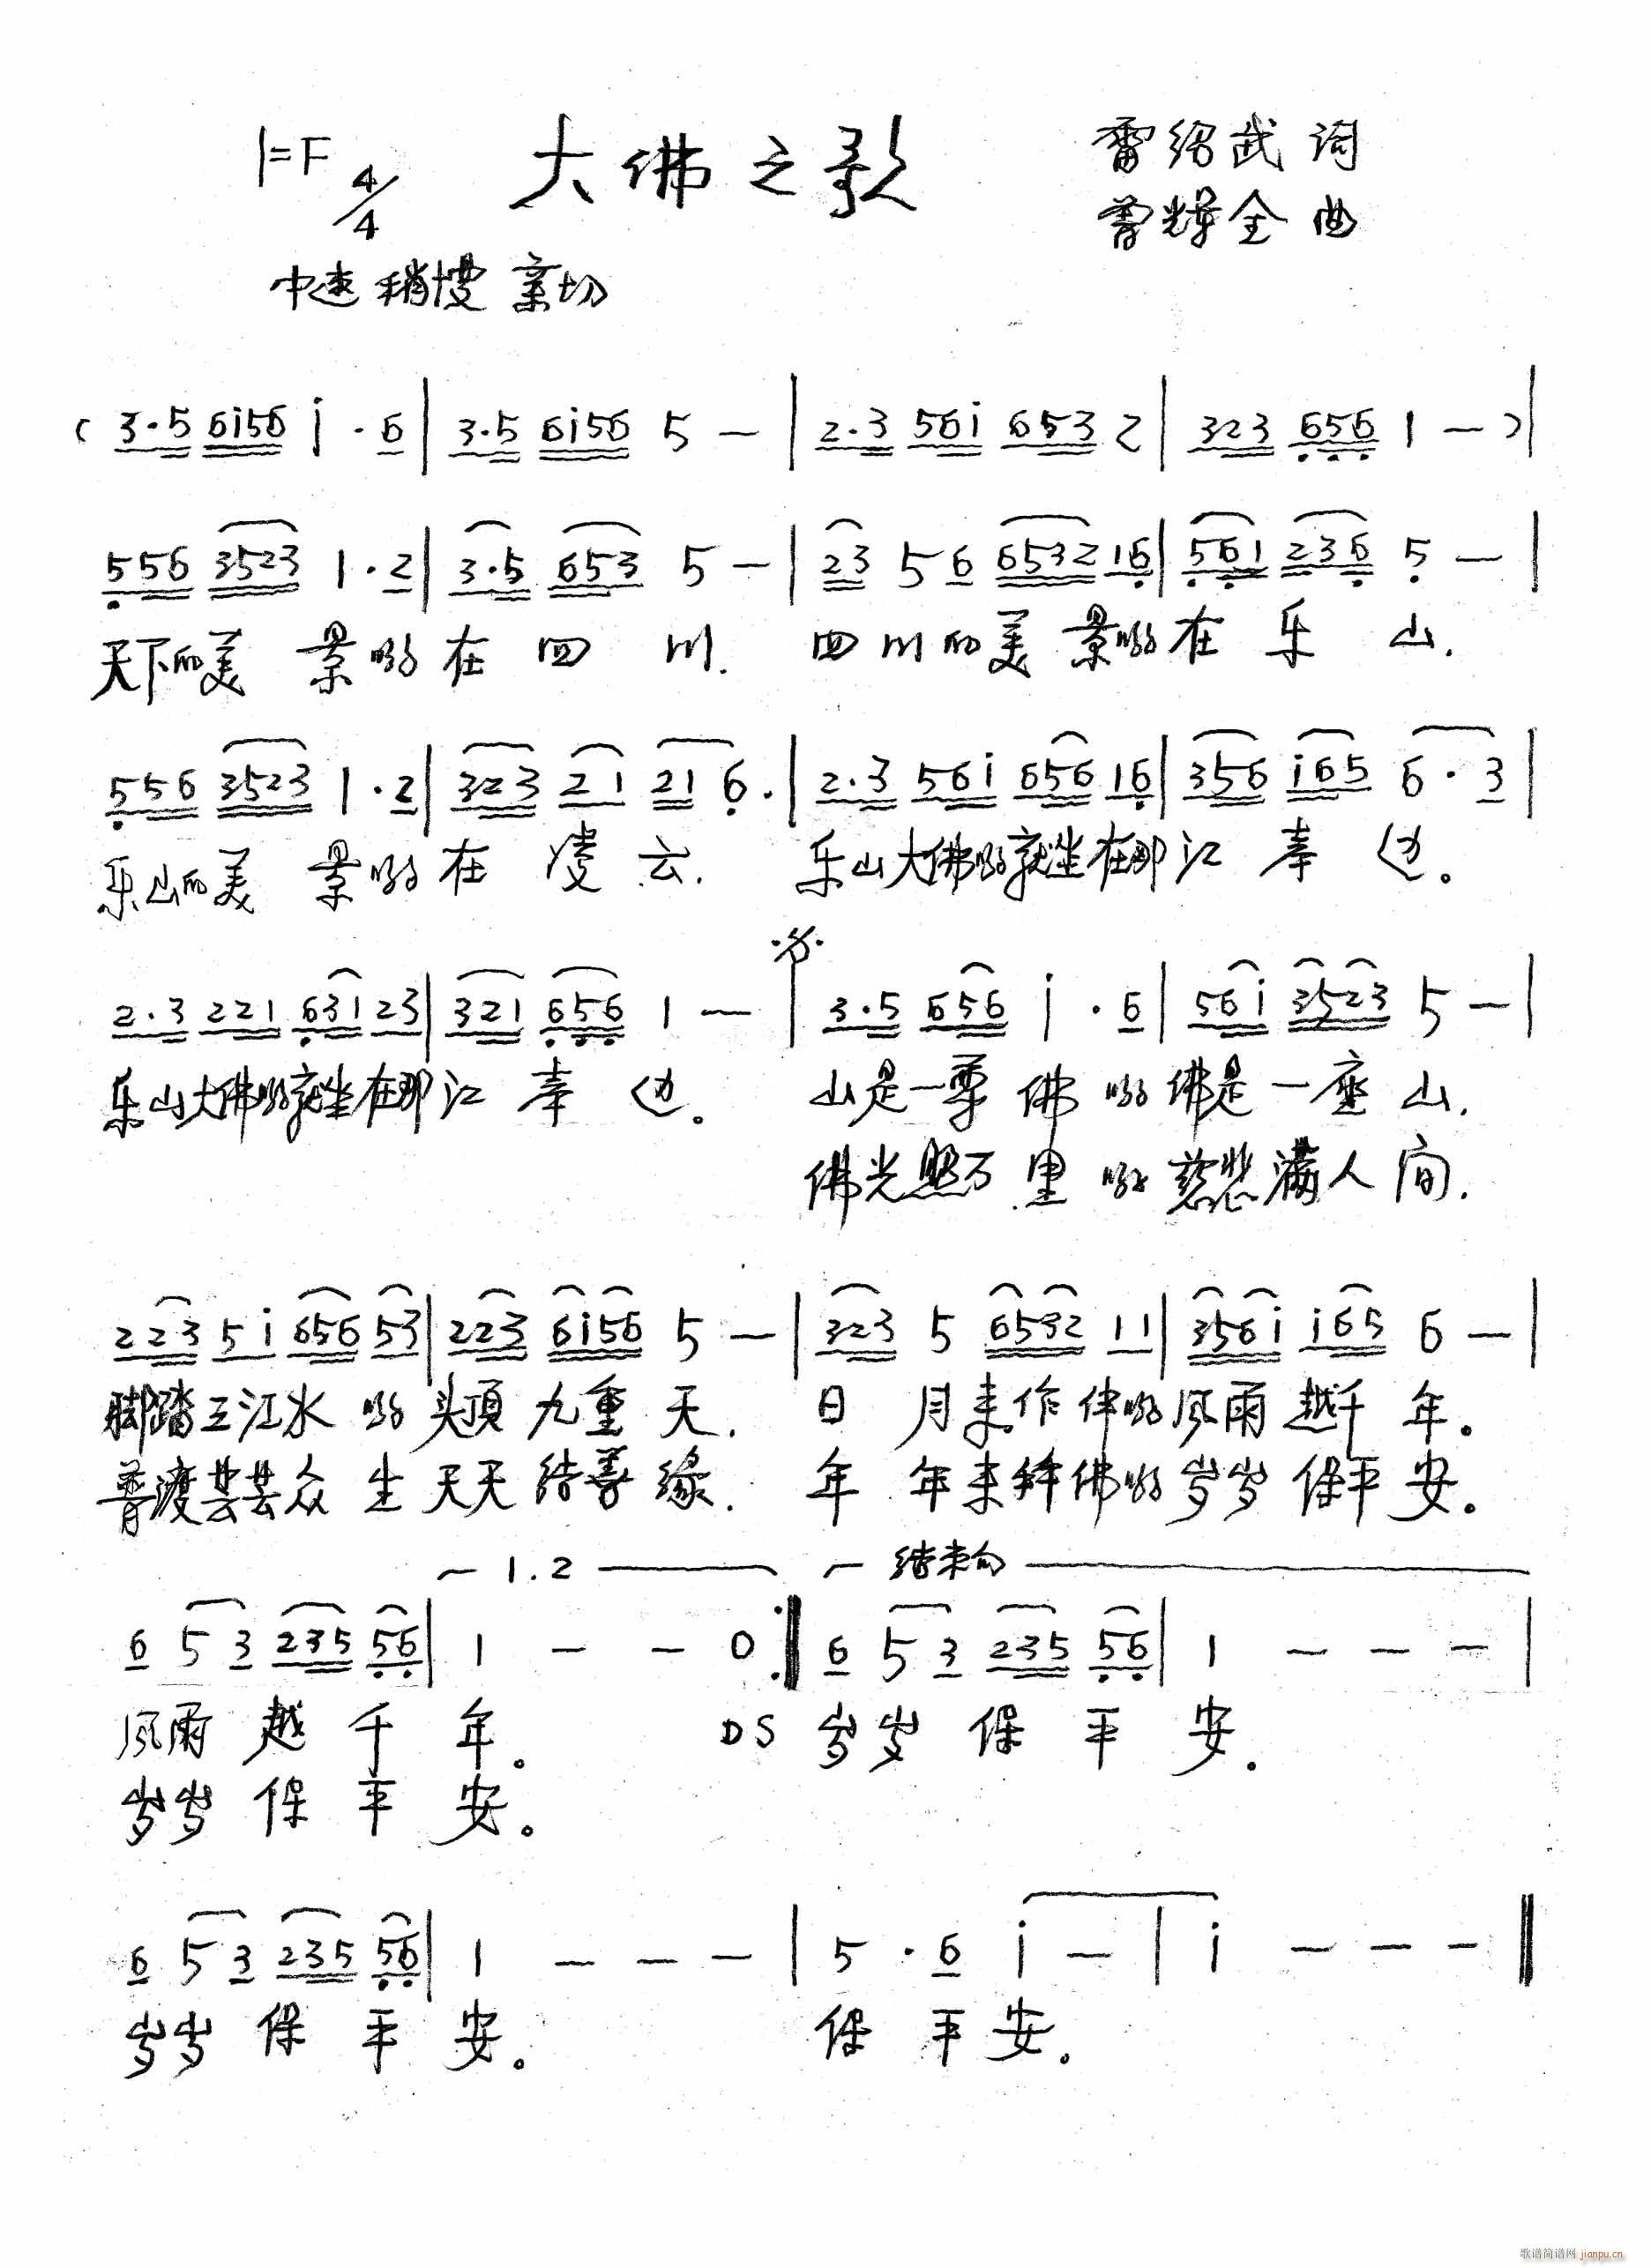 1=F 4/4 大佛之歌 雷绍武 词
曾辉全 曲
中速 稍慢 亲切
( 3·5 6i56 i · 6 | 3·5 6i56 5 — | 2·3 56i 653 2 | 323 656 1 — ) |
556 3523 1·2 | 3·5 653 5 — | 23 5 6 6532 16 | 561 236 5 — |
天下的美 景哟在 四 川. 四川的美 景哟在 乐 山.
556 3523 1·2 | 323 21 21 6· | 2·3 56i 656 16 | 356 i65 6·3 |
乐山的美 景哟在 凌 云. 乐山大佛哟就坐在那江 岸 边。
2·3 221 631 23 | 321 656 1 — | 3·5 656 i · 6 | 56i 3523 5 — |
乐山大佛哟就坐在那江 岸 边。 山是一尊 佛 哟佛是一座山.
佛光照万 里 哟慈悲满人间.
223 5i 656 53 | 223 6i56 5 — | 323 5 6532 11 | 356i i65 6 — |
脚踏三江水 哟 头顶九重天. 日 月来作伴哟风雨越千年。
普渡芸芸众 生 天天结善缘. 年 年来拜佛哟岁岁保平安。
1.2 结束句
6 5 3 235 56 | 1 — — 0 :‖ 6 5 3 235 56 | 1 — — — |
风雨 越 千 年。 DS 岁岁 保 平 安.
岁岁 保 平 安。
6 5 3 235 56 | 1 — — — | 5 · 6 i — | i — — — ‖
岁岁 保 平 安。 保 平安。
歌谱简谱网 jianpu.cn